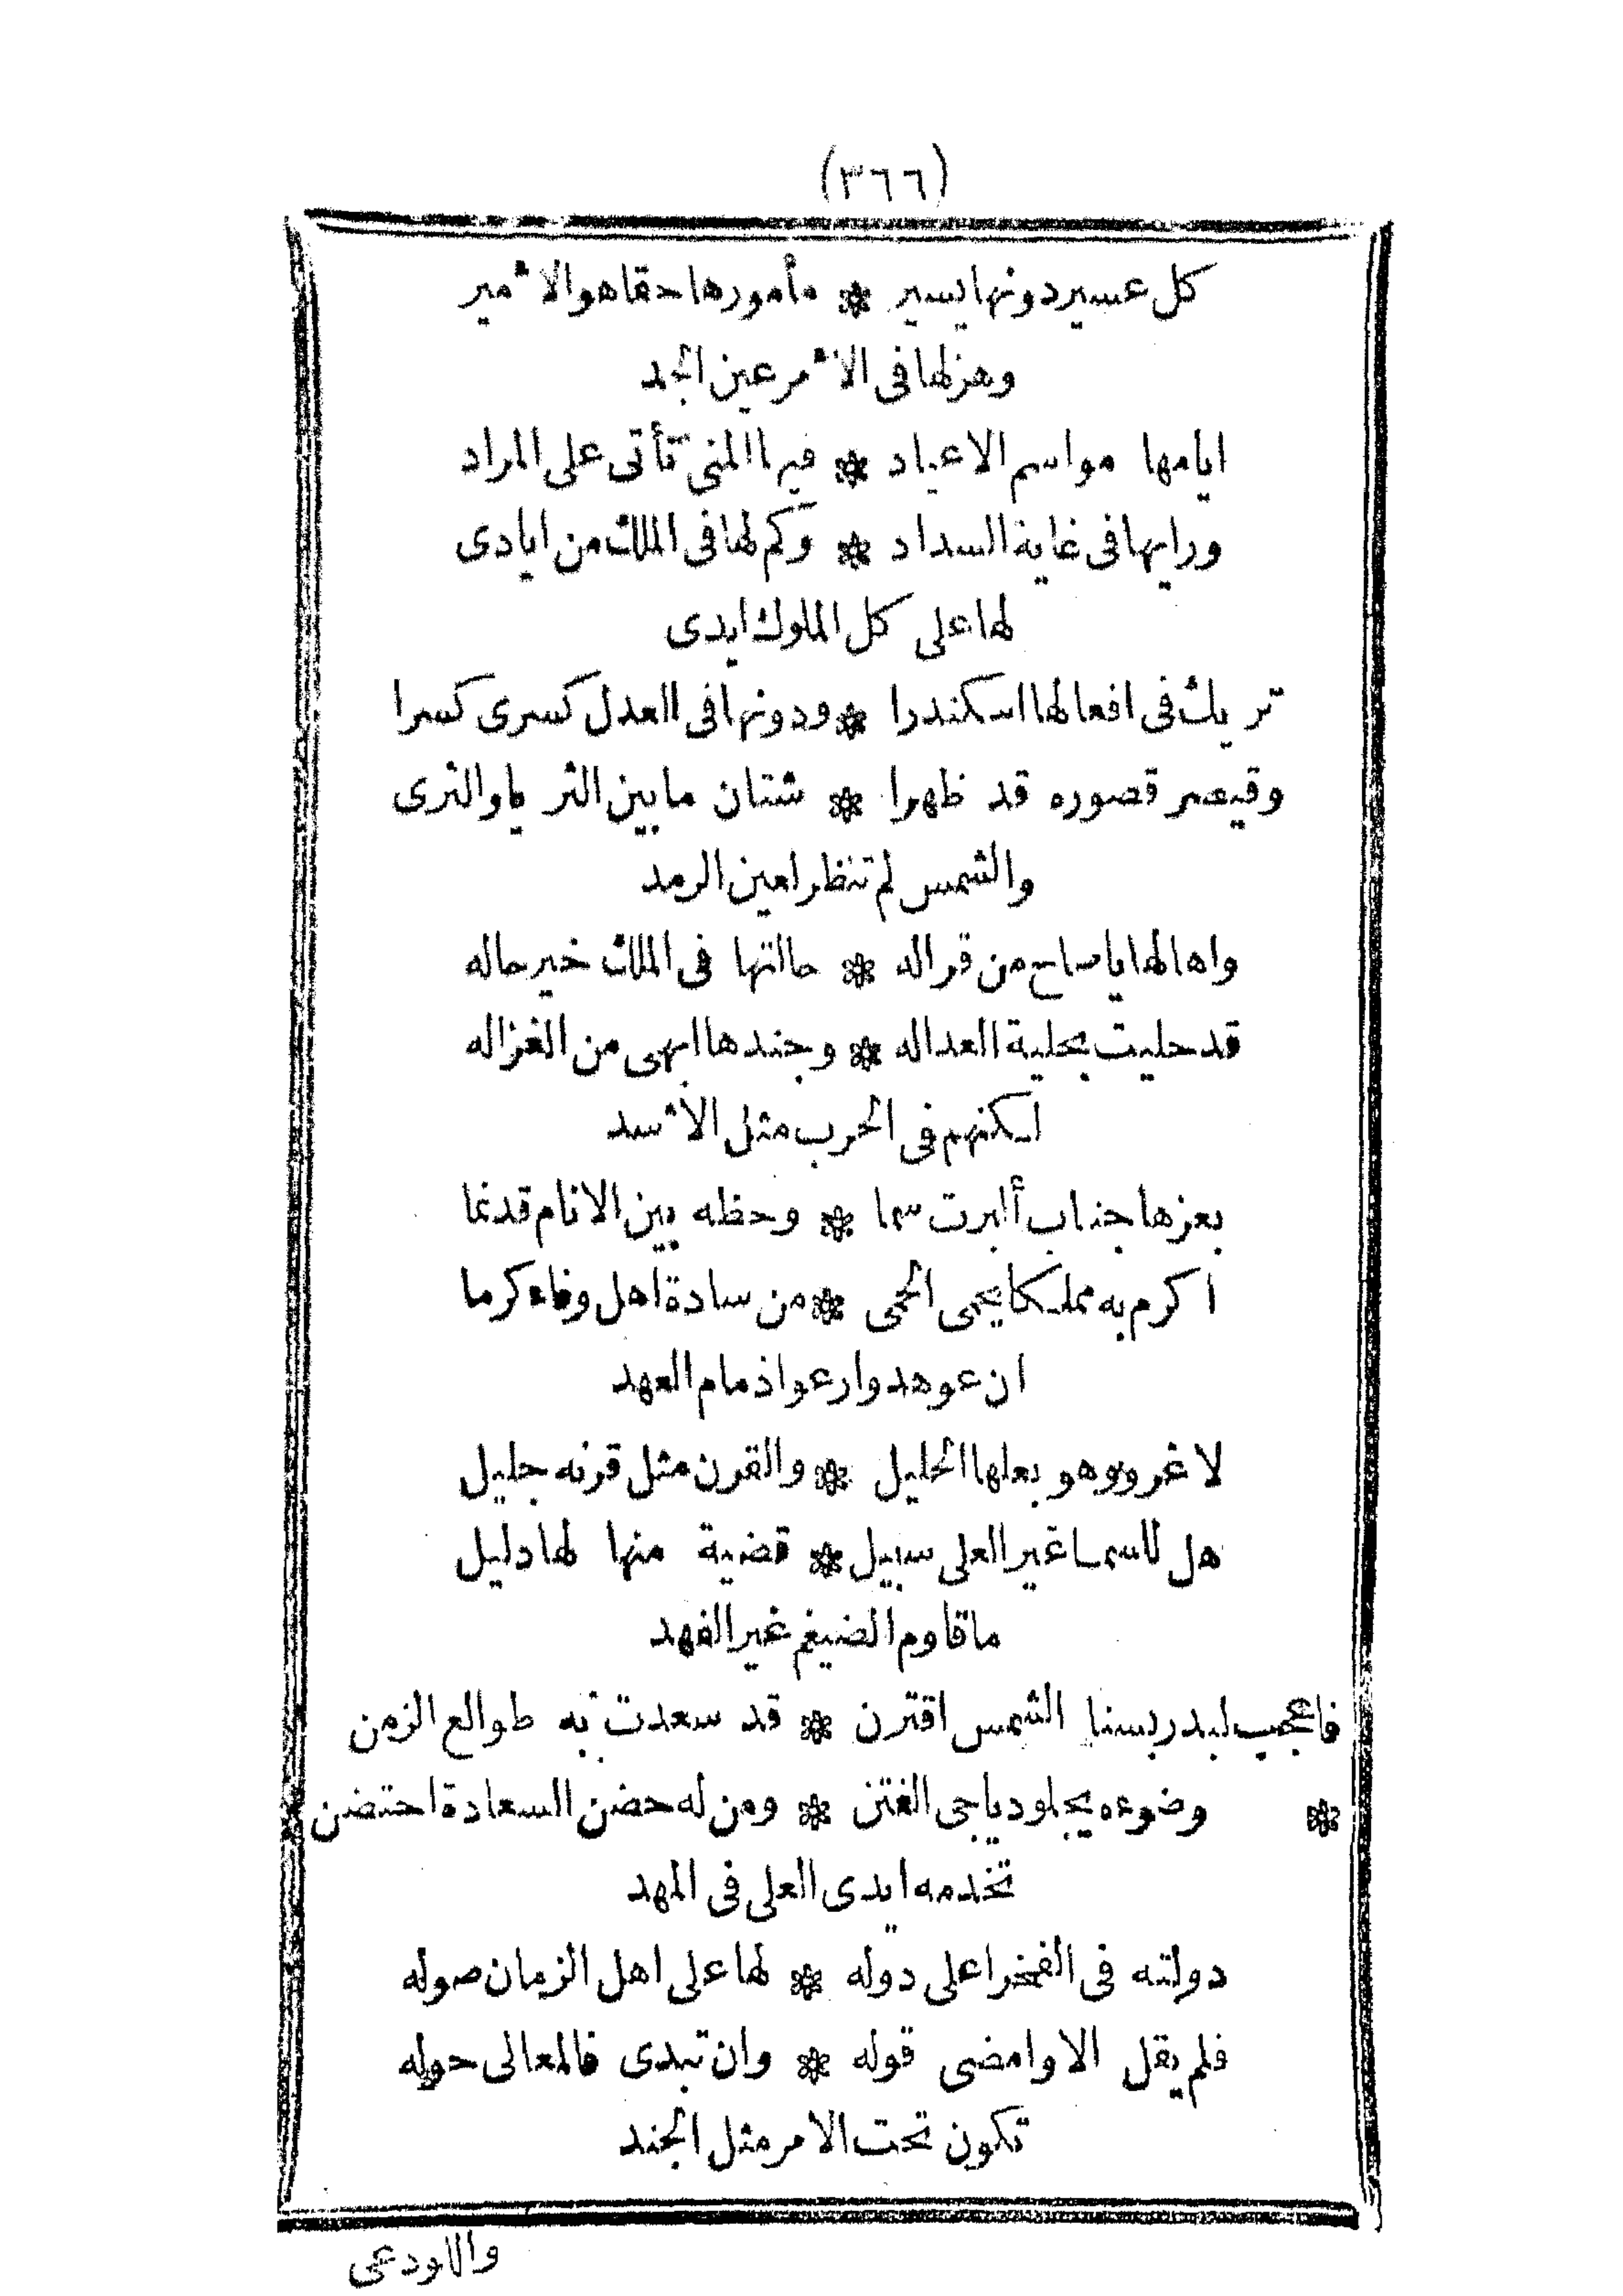 (٣٦٦)
كل عسير دونها يسير * مأمورها حقا هو الأمير
وهزلها فى الأمر عين الجد
ايامها مواسم الاعياد * فيها المنى تأتى على المراد
ورايها فى غاية السداد * وكم لها فى الملك من ايادى
لها على كل الملوك ايدى
تريك فى افعالها اسكندرا * ودونها فى العدل كسرى كسرا
وقيصر قصوره قد ظهرا * شتان ما بين الثريا والثرى
والشمس لم تنظر لعين الرمد
واها لها ياصاح من قراله * حالتها فى الملك خير حاله
قد حليت بحلية العداله * وجندها ابهى من الغزاله
لكنهم فى الحرب مثل الأسد
بعزها جناب ألبرت سما * وحظه بين الانام قد نما
اكرم به مملكا يحمى الحمى * من سادة اهل وفاء كرما
ان عوهدوا رعوا ذمام العهد
لا غرو وهو بعلها الحليل * والقرن مثل قرنه جليل
هل للسما غير العلى سبيل * قضية منها لها دليل
ما قاوم الضيغم غير الفهد
فاعجب لبدر بسنا الشمس اقترن * قد سعدت به طوالع الزمن
* وضوءه يجلو دياجى الفتن * ومن له حضن السعادة احتضن *
تخدمه ايدى العلى فى المهد
دولته فى الفخر اعلى دوله * لها على اهل الزمان صوله
فلم يقل الا وامضى قوله * وان تبدى فالمعالى حوله
تكون تحت الامر مثل الجند